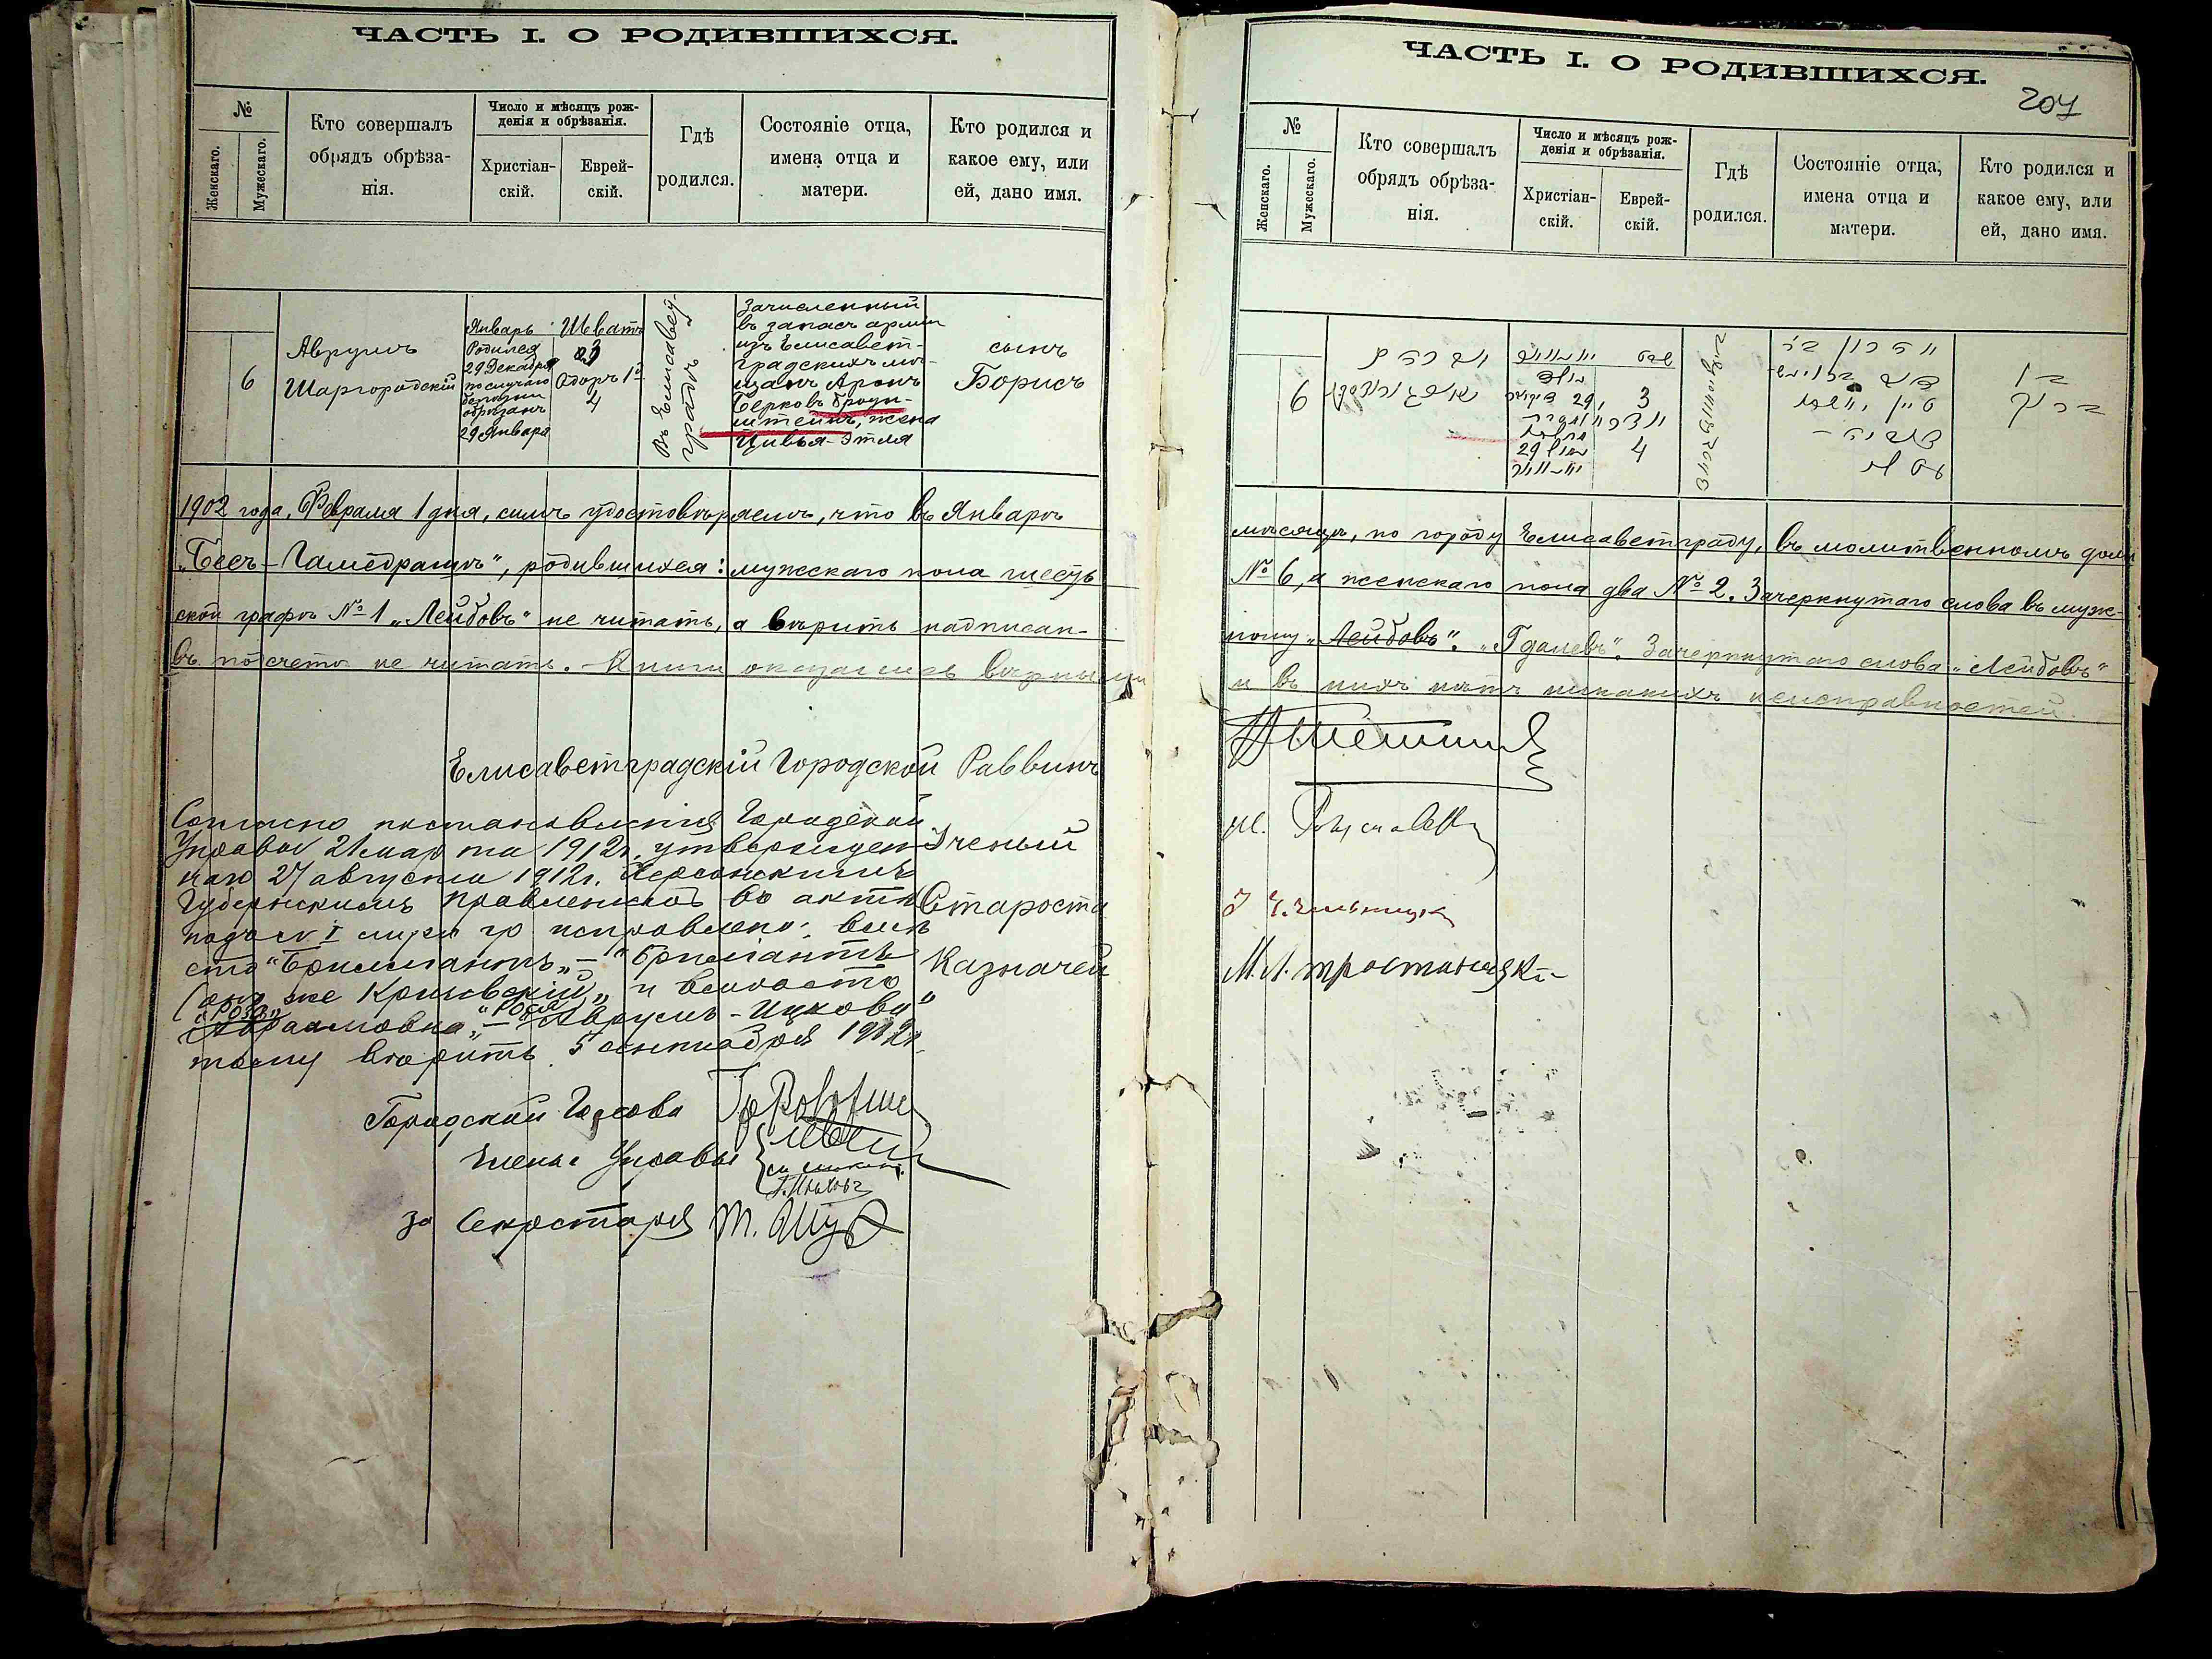 ЧАСТЬ I. О РОДИВШИХСЯ.
№
Женскаго.
Мужескаго.
Кто совершалъ
обрядъ обрѣза-
нія.
Число и мѣсяцъ рож-
денія и обрѣзанія.
Христіан-
скій.
Еврей-
скій.
Гдѣ
родился.
Состояніе отца,
имена отца и
матери.
Кто родился и
какое ему, или
ей, дано имя.
6
Аврумъ
Шаргородскій
Январь
Родился
29 Декабря
по случаю
болѣзни
обрѣзанъ
29 Января
Шватъ
3
Адоръ 1й
4
Въ Елисавет-
градѣ
Зачисленный
въ запасъ арміи
изъ Елисавет-
градскихъ мѣ-
щанъ Аронъ
Берковъ Броун-
штейнъ, жена
Цивья-Этля
сынъ
Борисъ
1902 года, Февраля 1 дня, симъ удостовѣряемъ, что въ Январѣ
„Бесъ-Гамедрашъ", родившихся: мужескаго пола шесть
ской графѣ № 1 „Лейбовъ" не читать, а вѣрить надписан-
въ подсчетѣ не читать. Книги оказались вѣрными
Елисаветградскій Городской Раввинъ
Согласно постановленія Городской
Управы 21 марта 1912 г. утвержден-
наго 27 августа 1912 г. Херсонскимъ
Губернскимъ Правленіемъ въ актѣ
подъ № I исправлено: вмѣ-
сто "Бриллiантъ" – "Брилiантъ
(онъ же Крыжовскій" и вмѣсто
"Роза" "Рося"
Абрамовна" – Аврумъ-Ицкова"
тому вѣрить. 5 сентября 1912 г.
Ученый
Староста
Казначей
Городской Голова
Члены Управы
за Секретаря
ЧАСТЬ I. О РОДИВШИХСЯ.
207
№
Женскаго.
Мужескаго.
Кто совершалъ
обрядъ обрѣза-
нія.
Число и мѣсяцъ рож-
денія и обрѣзанія.
Христіан-
скій.
Еврей-
скій.
Гдѣ
родился.
Состояніе отца,
имена отца и
матери.
Кто родился и
какое ему, или
ей, дано имя.
6
אברהם
שארגאראדסקי
יאנואר
29
29
יאנואר
שבט
3
4
בן
ברוך
мѣсяцѣ, по городу Елисаветграду, въ молитвенномъ домѣ
№ 6, а женскаго пола два № 2. Зачеркнутаго слова въ муж-
ному „Лейбовъ". „Гдалевъ". Зачеркнутаго слова „Лейбовъ"
и въ нихъ нѣтъ никакихъ неисправностей.